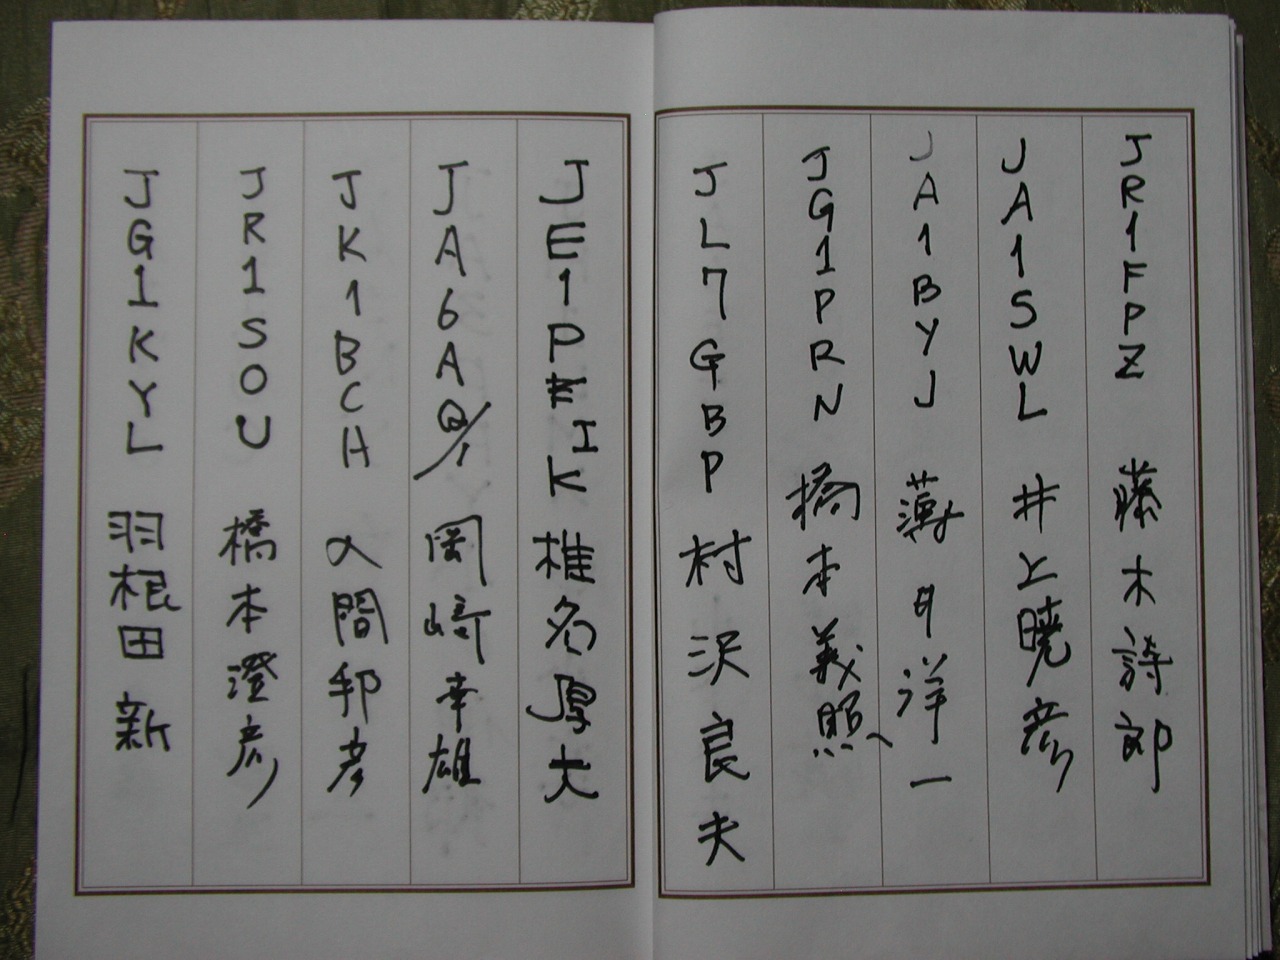 JR1FPZ 藤木詩郎
JA1SWL 井上暁彦
JA1BYJ 薄井洋一
JG1PRN 橋本義照
JL7GBP 村沢良夫
JE1PIK 椎名厚大
JA6AQ/1 岡﨑幸雄
JK1BCH 入間邦彦
JR1SOU 橋本澄彦
JG1KYL 羽根田 新